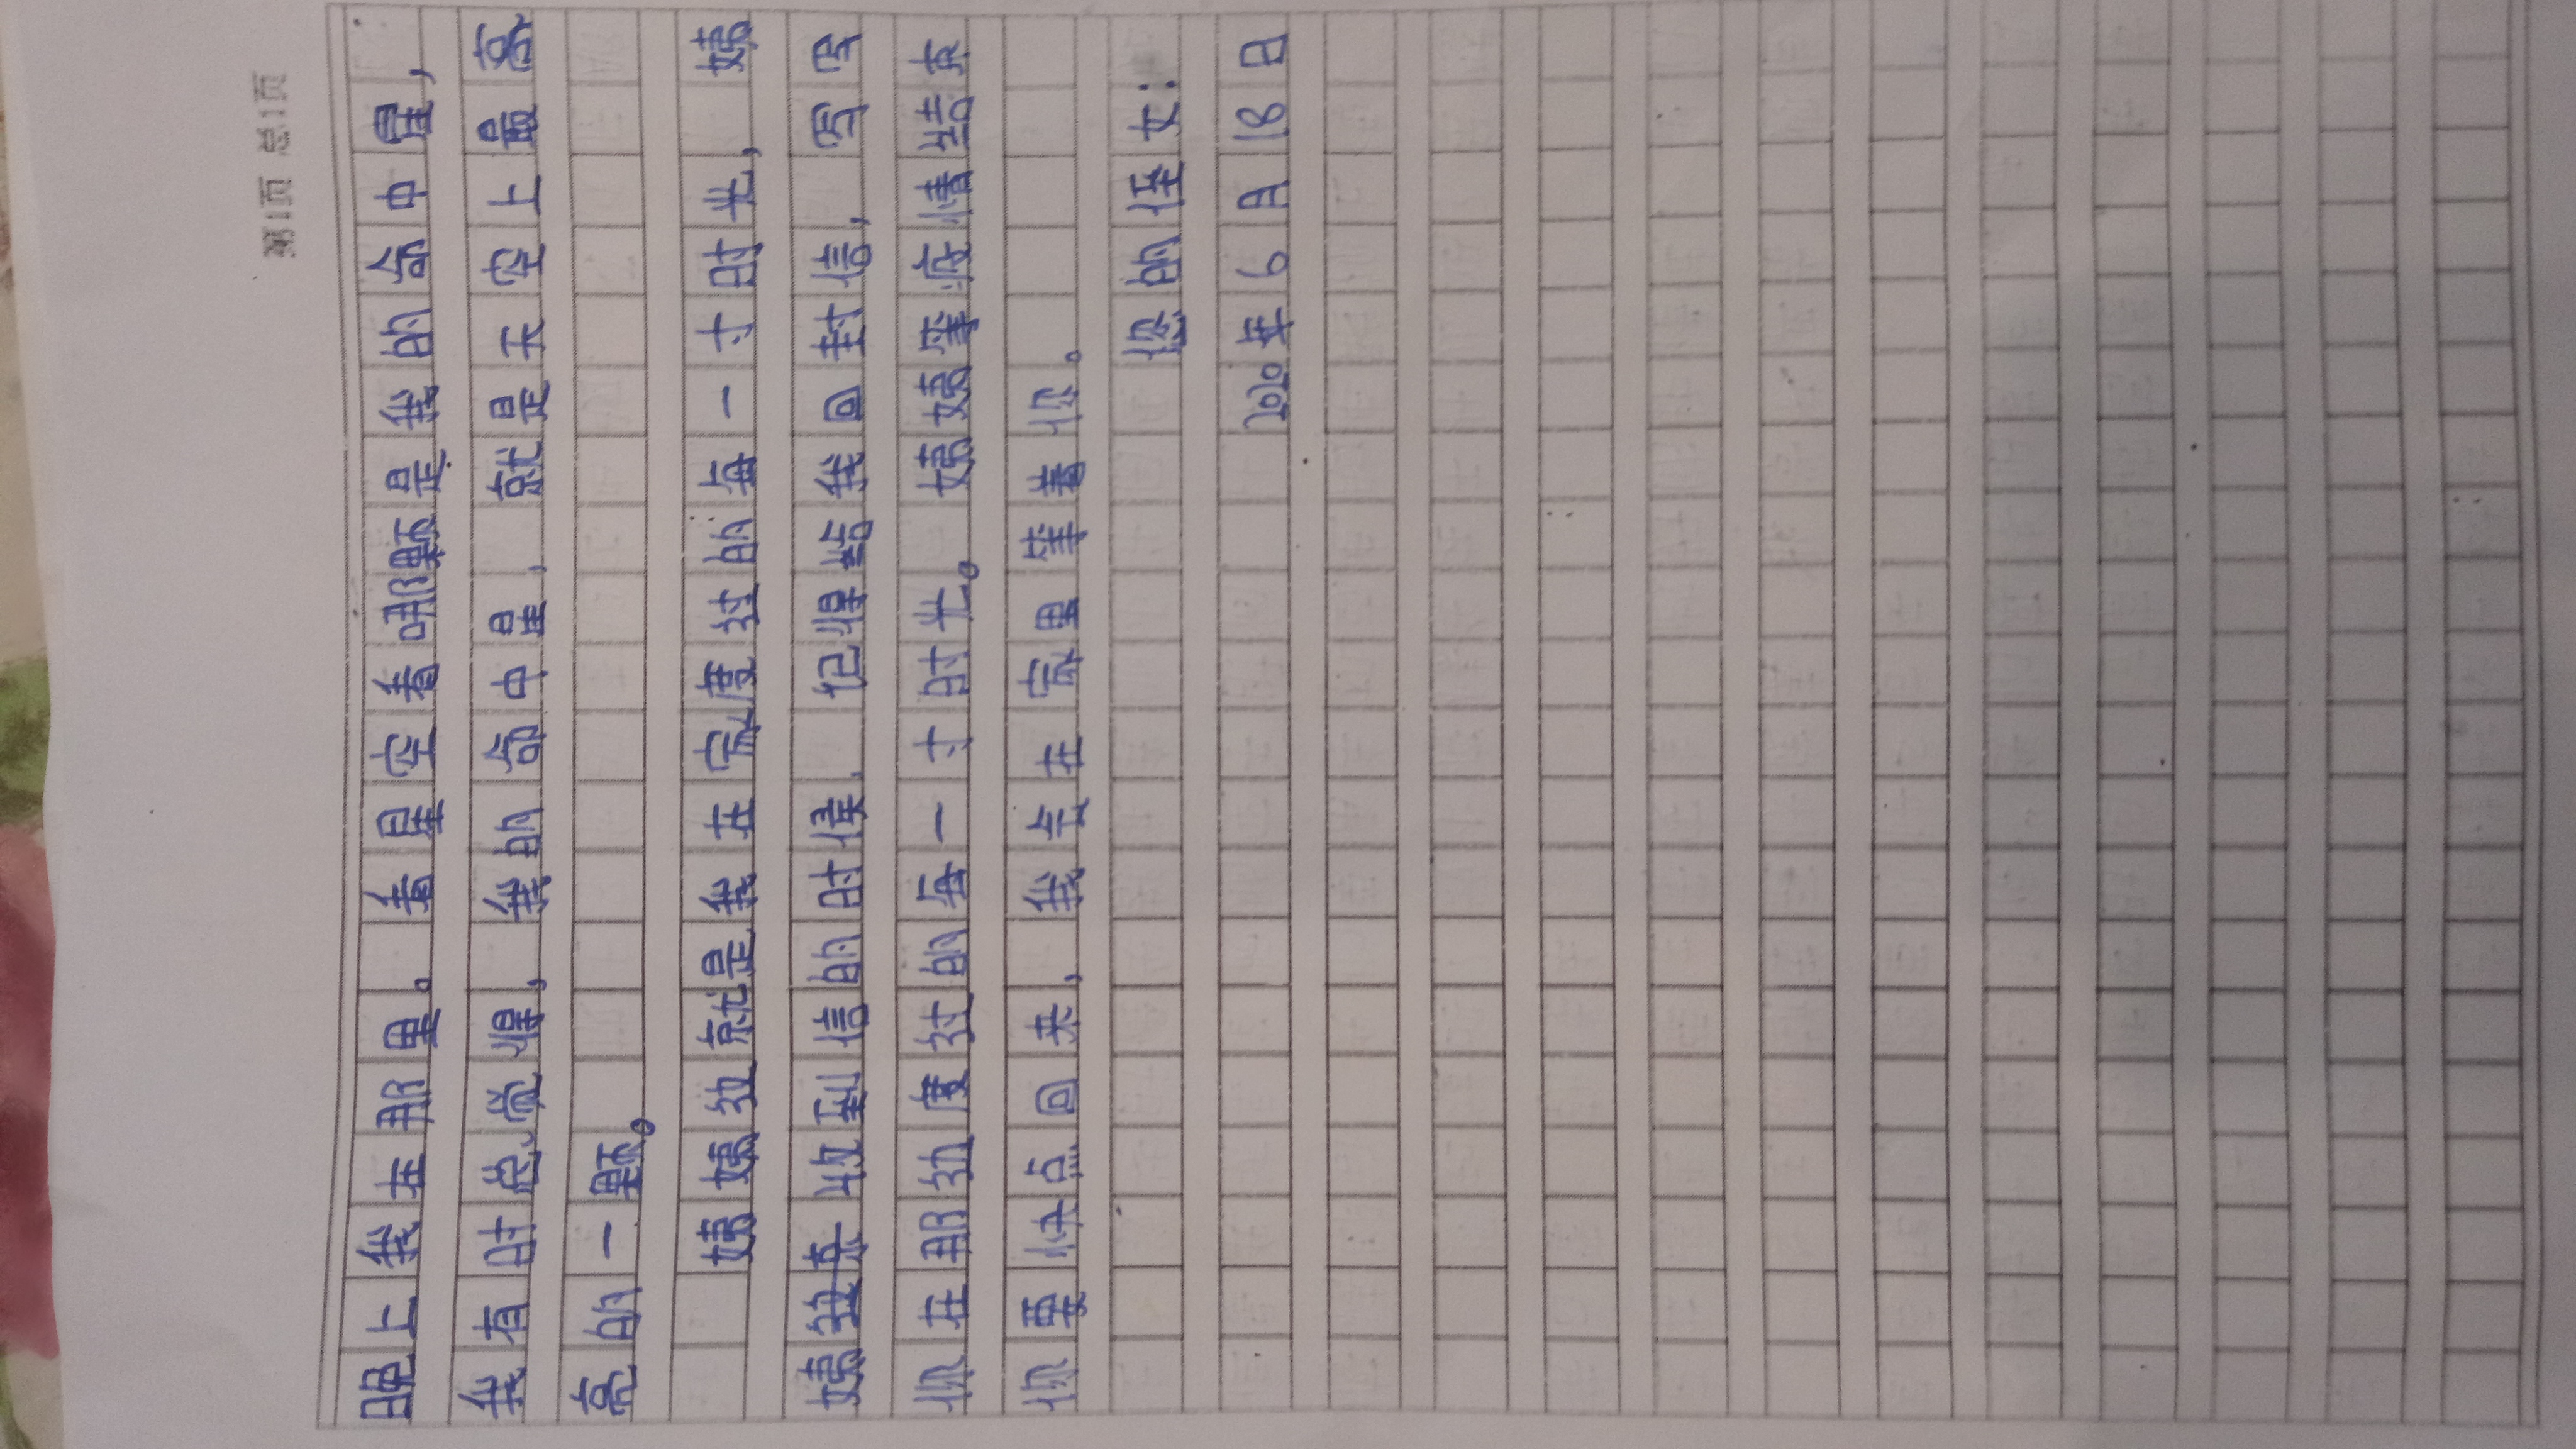 第1页 总1页
晚上我在那里。看星空看哪颗是我的命中星,
我有时总觉得,我的命中星,就是天空上最亮
亮的一颗。
这就是我在这度过的每一寸时光,
你收到信的时候.记得给我回封信,写写
你在那边度过的每一寸时光。等疫情结束
你要快点回来,我们在这里等着你。
您的侄女:
2020年6月18日